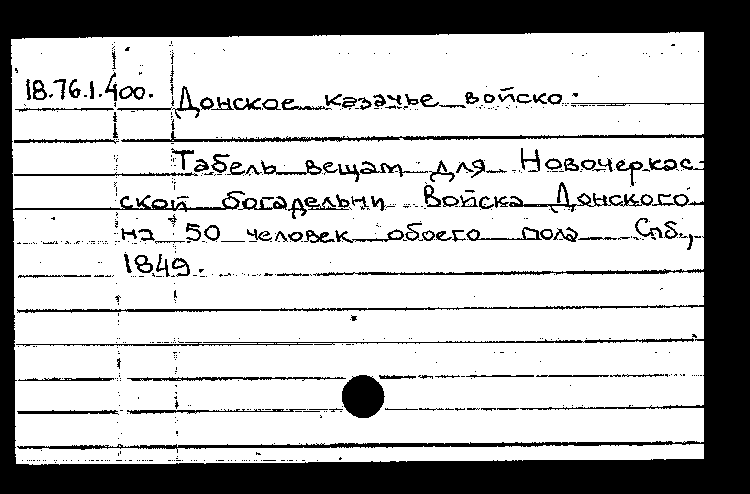 18.76.1.400. Донское казачье войско.
Табель вещам для Новочеркас-
ской богадельни Войска Донского
на 50 человек обоего пола Спб.,
1849.